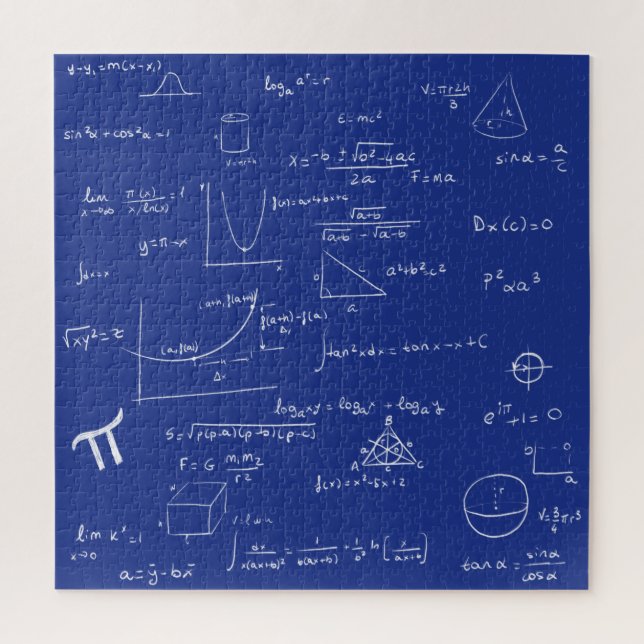 y-y₁=m(x-x₁)
logₐ aʳ=r
V=πr2h/3
h
r
E=mc²
sin²α+cos²α=1
V=πr²h
x=-b±√b²-4ac/2a
F=ma
sinα=a/c
lim x→∞ π(x)/x/ln(x)=1
y
x
f(x)=ax4bx+c
√a+b/√a+b-√a-b
Dx(c)=0
y=π-x
∫dx=x
b
c
a
a²+b²=c²
P²αa³
(a+h, f(a+h))
f(a+h)-f(a)
√xy²=z
(a, f(a))
h
Δx
∫tan²xdx=tanx-x+C
logₐxy=logₐx+logₐy
e^iπ+1=0
S=√p(p-a)(p-b)(p-c)
B
a
b
A
c
C
b
0
a
π
F=G m₁m₂/r2
f(x)=x²-5x+2
r
V=3/4πr³
V=lwh
lim x→0 kˣ=1
∫dx/x(ax+b)²=1/b(ax+b)+1/b² ln(x/ax+b)
tanα=sinα/cosα
a=ȳ-bx̄